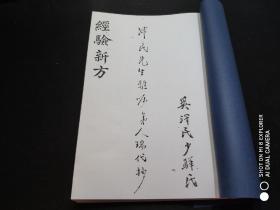 經驗新方
澤民先生雅屬 弟人瑞代抄
吳澤民少縣長
SHOT ON MI 8 EXPLORER
AI DUAL CAMERA